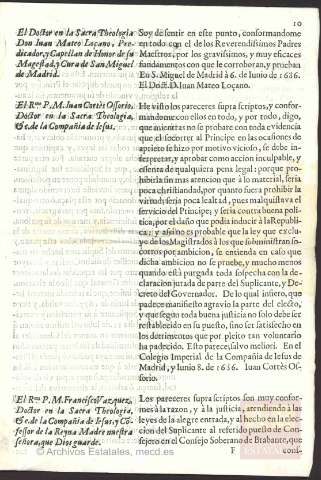 10
El Doctor en la Sacra Theologia
Don Iuan Mateo Loçano, Pre-
dicador, y Capellan de Honor de su
Magestad, y Cura de San Miguel
de Madrid.
Soy de sentir en este punto, conformandome
en todo con el de los Reverendissimos Padres
Maestros, por los gravissimos, y muy eficaces
fundamentos con que le corroboran, y prueban
En S. Miguel de Madrid à 6. de Iunio de 1686.
El Doct. D. Iuan Mateo Loçano.
El Rmo P. M. Iuan Cortès Ossorio,
Doctor en la Sacra Theologia,
&c. de la Compañia de Iesus.
He visto los pareceres supra scriptos, y confor-
mandome con ellos en todo, y por todo, digo,
que mientras no se probare con toda evidencia
que el socorrer al Principe en las ocasiones de
aprieto se hizo por motivo vicioso, se debe in-
terpretar, y aprobar como accion inculpable, y
essenta de qualquiera pena legal; porque pro-
hibirla sin mas atencion que à lo material, seria
poca christiandad, por quanto fuera prohibir la
virtud; seria poca lealtad, pues malquistava el
servicio del Principe; y seria contra buena poli-
tica, por el daño que podia inducir à la Republi-
ca; y assi no es probable que la ley que exclu-
ye de los Magistrados à los que subministran so-
corros por ambicion, se entienda en caso que
dicha ambicion no se pruebe, y mucho menos
quando està purgada toda sospecha con la de-
claracion jurada de parte del Suplicante, y De-
creto del Governador. De lo qual infiero, que
padece manifiesto agravio la parte del electo,
y que segun toda buena justicia no solo debe ser
restablecido en su puesto, sino ser satisfecho en
los detrimentos que por pleito tan voluntario
ha padecido. Esto parece, salvo meliori. En el
Colegio Imperial de la Compañia de Iesus de
Madrid, y Iunio 8. de 1686. Iuan Cortès Os-
sorio.
El Rmo P. M. Francisco Vazquez,
Doctor en la Sacra Theologia,
&c. de la Compañia de Iesus, y Co-
fessor de la Reyna Madre nuestra
señora, que Dios guarde.
Los pareceres supra scriptos son muy confor-
mes à la razon, y à la justicia, atendiendo à las
leyes de la alegre entrada, y al hecho en la elec-
cion del Suplicante al referido puesto de Con-
sejero en el Consejo Soberano de Brabante, que
F
conf-
© Archivos Estatales, mecd.es